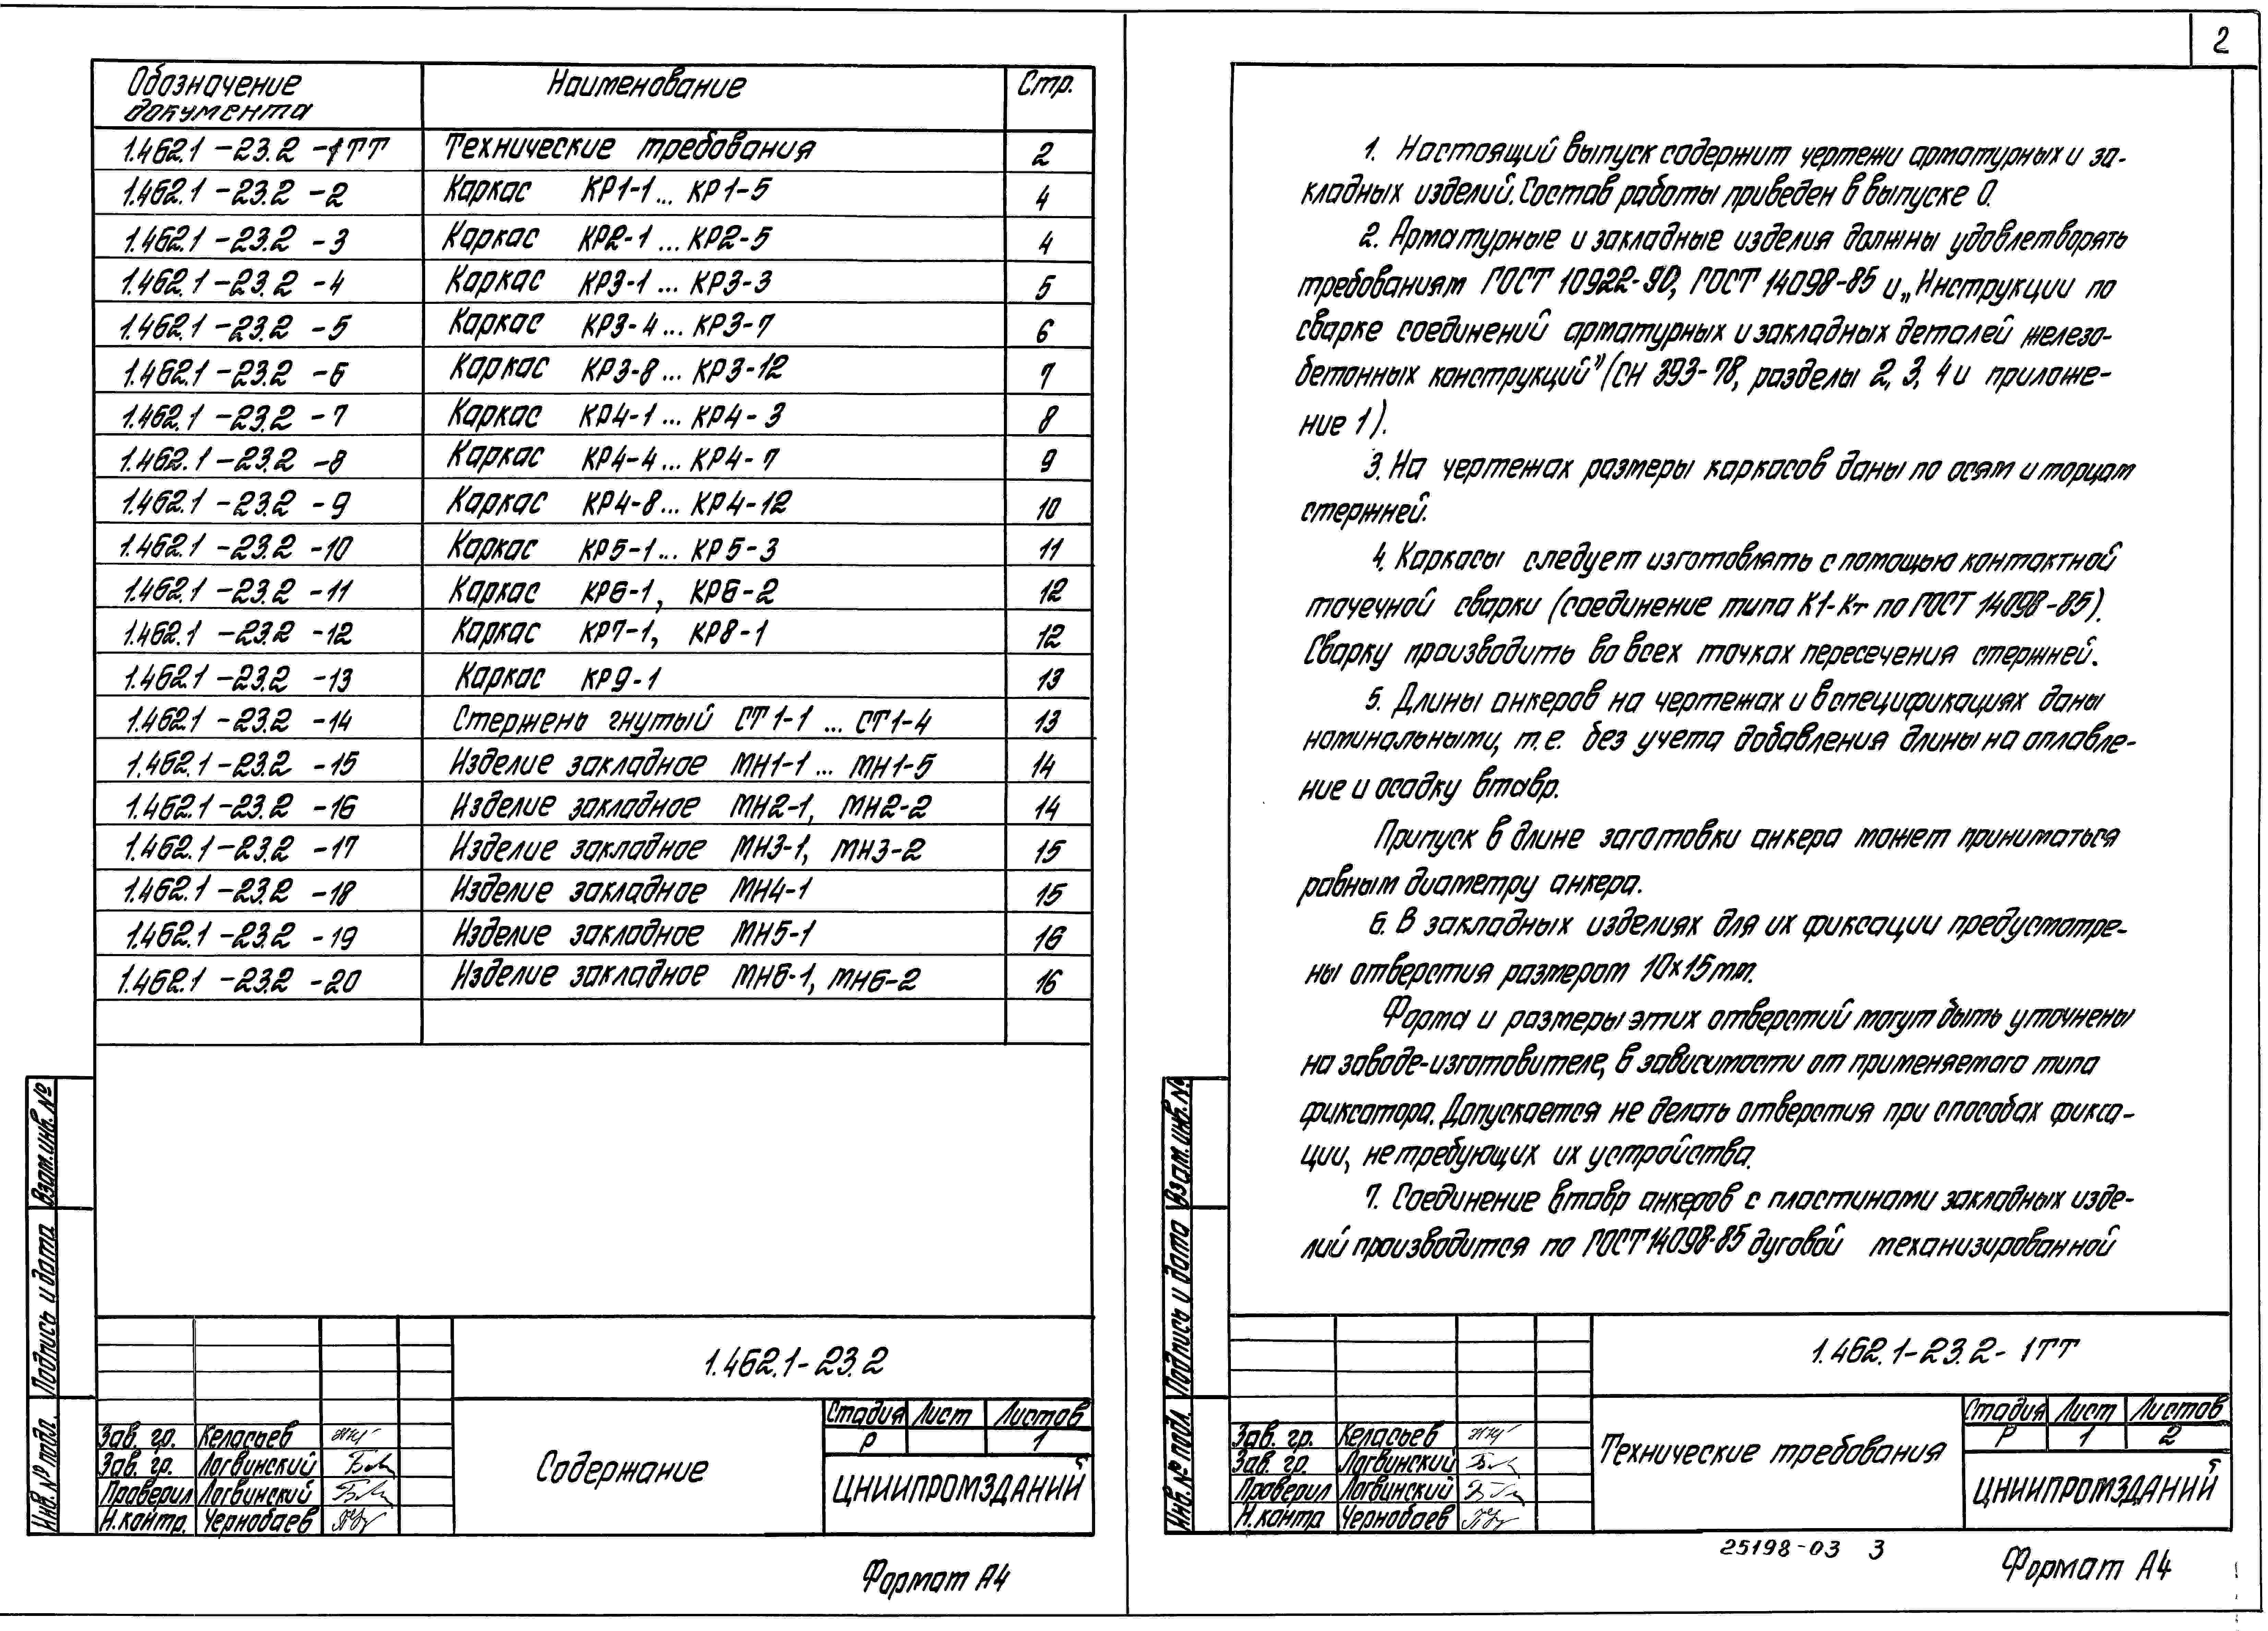 Обозначение документа Наименование Стр.
1.462.1-23.2-1ТТ Технические требования 2
1.462.1-23.2-2 Каркас КР1-1...КР1-5 4
1.462.1-23.2-3 Каркас КР2-1...КР2-5 4
1.462.1-23.2-4 Каркас КР3-1...КР3-3 5
1.462.1-23.2-5 Каркас КР3-4...КР3-7 6
1.462.1-23.2-6 Каркас КР3-8...КР3-12 7
1.462.1-23.2-7 Каркас КР4-1...КР4-3 8
1.462.1-23.2-8 Каркас КР4-4...КР4-7 9
1.462.1-23.2-9 Каркас КР4-8...КР4-12 10
1.462.1-23.2-10 Каркас КР5-1...КР5-3 11
1.462.1-23.2-11 Каркас КР6-1, КР6-2 12
1.462.1-23.2-12 Каркас КР7-1, КР8-1 12
1.462.1-23.2-13 Каркас КР9-1 13
1.462.1-23.2-14 Стержень гнутый СТ1-1...СТ1-4 13
1.462.1-23.2-15 Изделие закладное МН1-1...МН1-5 14
1.462.1-23.2-16 Изделие закладное МН2-1, МН2-2 14
1.462.1-23.2-17 Изделие закладное МН3-1, МН3-2 15
1.462.1-23.2-18 Изделие закладное МН4-1 15
1.462.1-23.2-19 Изделие закладное МН5-1 16
1.462.1-23.2-20 Изделие закладное МН6-1, МН6-2 16
Взам. инв. №
Подпись и дата
Инв. № подл.
1.462.1-23.2
Стадия Лист Листов
Р 1
Зав. гр. Келасьев
Зав. гр. Логвинский
Проверил Логвинский
Н.контр. Чернобаев
Содержание
ЦНИИПРОМЗДАНИЙ
Формат А4
2
1. Настоящий выпуск содержит чертежи арматурных и за-
кладных изделий. Состав работы приведен в выпуске 0.
2. Арматурные и закладные изделия должны удовлетворять
требованиям ГОСТ 10922-90, ГОСТ 14098-85 и „Инструкции по
сварке соединений арматурных и закладных деталей железо-
бетонных конструкций" (СН 393-78, разделы 2, 3, 4 и приложе-
ние 1).
3. На чертежах размеры каркасов даны по осям и торцам
стержней.
4. Каркасы следует изготовлять с помощью контактной
точечной сварки (соединение типа К1-Кт по ГОСТ 14098-85).
Сварку производить во всех точках пересечения стержней.
5. Длины анкеров на чертежах и в спецификациях даны
номинальными, т.е. без учета добавления длины на оплавле-
ние и осадку втавр.
Припуск в длине заготовки анкера может приниматься
равным диаметру анкера.
6. В закладных изделиях для их фиксации предусмотре-
ны отверстия размером 10х15мм.
Форма и размеры этих отверстий могут быть уточнены
на заводе-изготовителе, в зависимости от применяемого типа
фиксатора. Допускается не делать отверстия при способах фикса-
ции, не требующих их устройства.
7. Соединение втавр анкеров с пластинами закладных изде-
лий производится по ГОСТ 14098-85 дуговой механизированной
Взам. инв. №
Подпись и дата
Инв. № подл.
1.462.1-23.2-1ТТ
Стадия Лист Листов
Р 1 2
Зав. гр. Келасьев
Зав. гр. Логвинский
Проверил Логвинский
Н.контр Чернобаев
Технические требования
ЦНИИПРОМЗДАНИЙ
25198-03 3
Формат А4